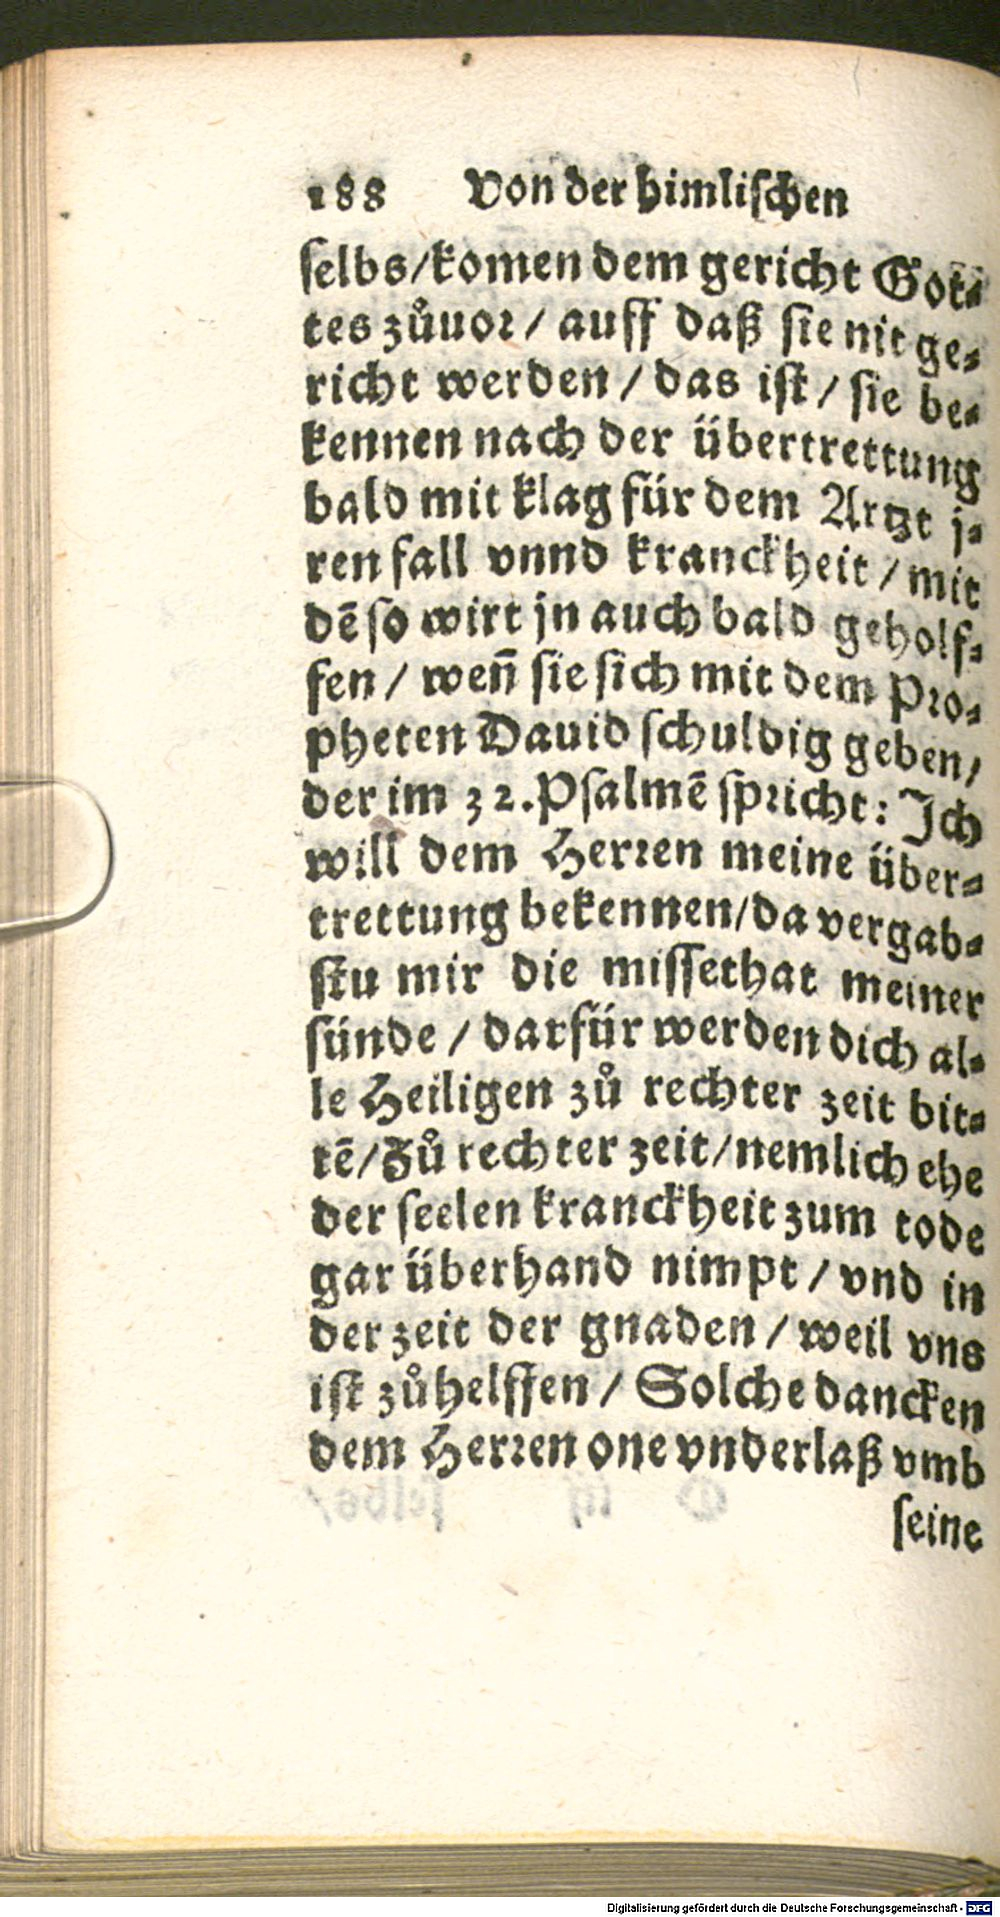 188 Von der himlischen
selbs/komen dem gericht Got⸗
tes zůuor / auff daß sie nit ge⸗
richt werden / das ist / sie be⸗
kennen nach der übertrettung
bald mit klag für dem Artzt j⸗
ren fall vnnd kranckheit / mit
dē so wirt jn auch bald geholf⸗
fen / weñ sie sich mit dem Pro⸗
pheten Dauid schuldig geben/
der im 32. Psalmē spricht: Ich
will dem Herren meine über⸗
trettung bekennen/da vergab⸗
stu mir die missethat meiner
sünde / darfür werden dich al⸗
le Heiligen zů rechter zeit bit⸗
tē/Zů rechter zeit/nemlich ehe
der seelen kranckheit zum tode
gar überhand nimpt / vnd in
der zeit der gnaden / weil vns
ist zůhelffen / Solche dancken
dem Herren one vnderlaß vmb
seine
Digitalisierung gefördert durch die Deutsche Forschungsgemeinschaft - DFG